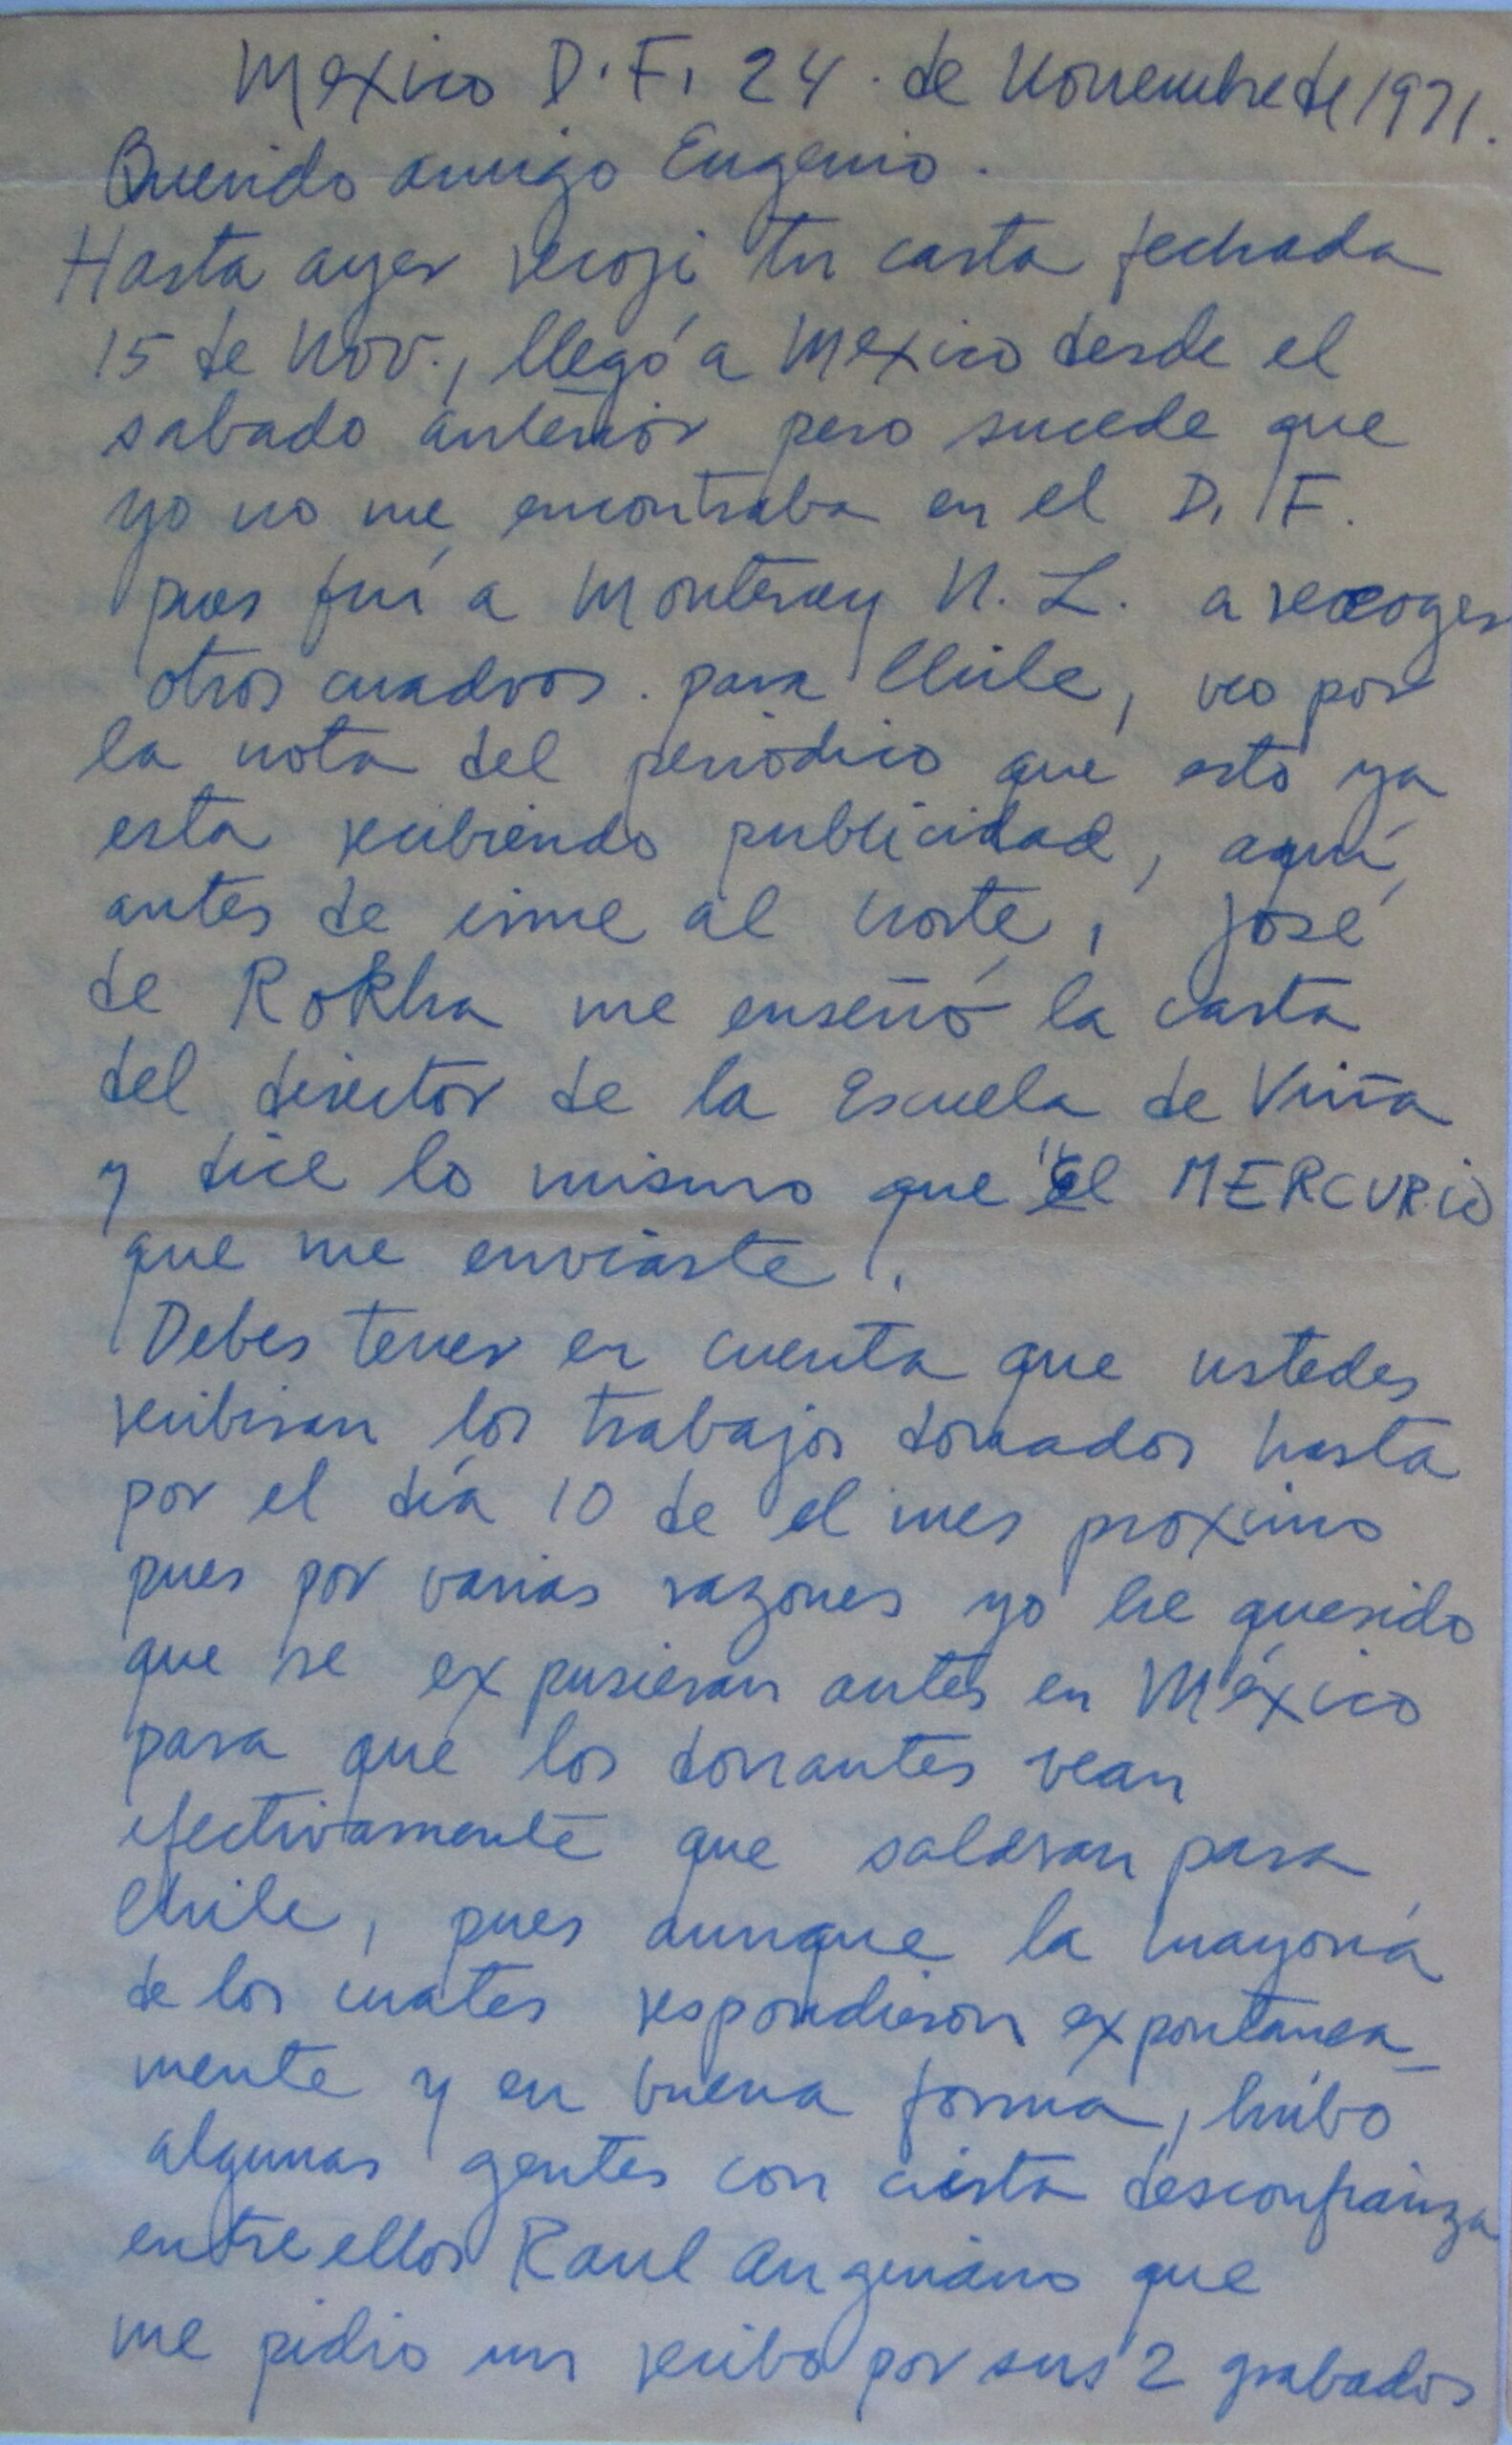 Mexico D.F. 24 de Noviembre de 1971.
Querido amigo Eugenio.
Hasta ayer recoji tu carta fechada
15 de Nov., llegó a Mexico desde el
sabado anterior pero sucede que
yo no me encontraba en el D.F.
pues fuí a Monterey N.L. a recoger
otros cuadros para Chile, veo por
la nota del periodico que esto ya
esta recibiendo publicidad, aquí,
antes de irme al norte, José
de Rokha me enseñó la carta
del director de la Escuela de Viña
y dice lo mismo que "El MERCURIO
que me enviaste.
Debes tener en cuenta que ustedes
recibiran los trabajos donados hasta
por el día 10 de el mes proximo
pues por varias razones yo he querido
que se expusieran antes en México
para que los donantes vean
efectivamente que saldran para
Chile, pues aunque la mayoría
de los cuates respondieron expontanea-
mente y en buena forma, húbo
algunas gentes con cierta desconfianza
entre ellos Raul Anguiano que
me pidio un recibo por sus 2 grabados